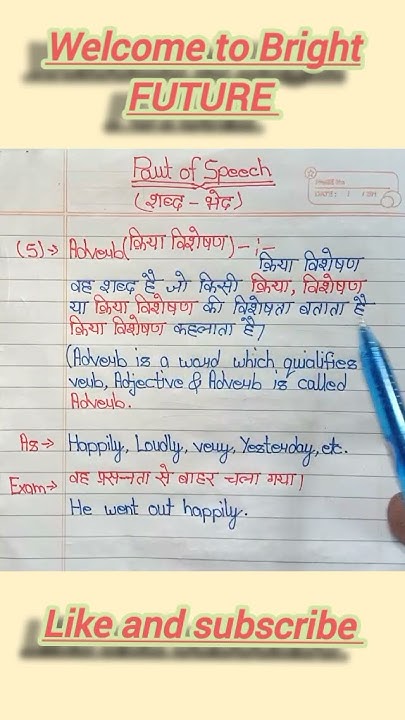 Welcome to Bright
FUTURE
Part of Speech
(शब्द - भेद)
(5)→ Adverb (क्रिया विशेषण) -:-
क्रिया विशेषण
वह शब्द है जो किसी क्रिया, विशेषण
या क्रिया विशेषण की विशेषता बताता है
क्रिया विशेषण कहलाता है।
(Adverb is a word which qualifies
verb, Adjective & Adverb is called
Adverb.
As→ Happily, Loudly, very, Yesterday, etc.
Exam→ वह प्रसन्नता से बाहर चला गया।
He went out happily.
Like and subscribe